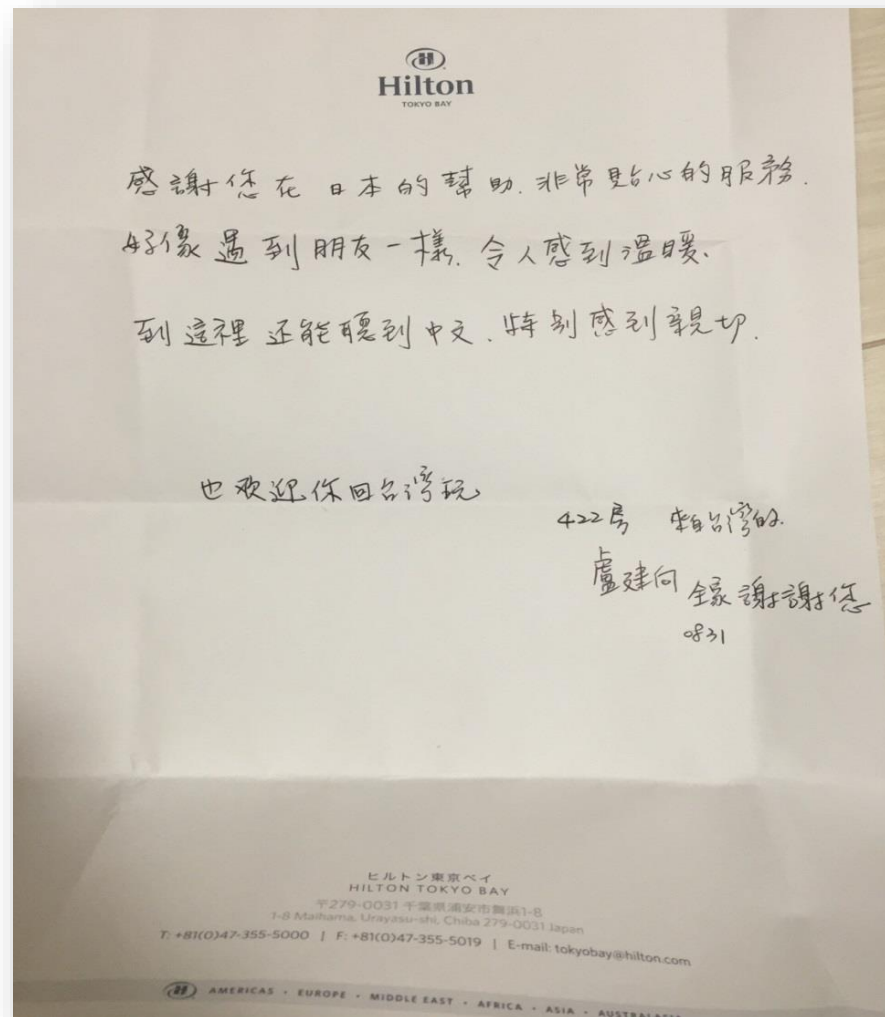 Hilton
TOKYO BAY
感謝您在日本的幫助.非常貼心的服務.
好像遇到朋友一樣.令人感到溫暖.
到這裡还能聽到中文.特別感到親切.
也欢迎你回台湾玩
422房 來自台湾的
盧建向 全家謝謝您
0831
ヒルトン東京ベイ
HILTON TOKYO BAY
〒279-0031 千葉県浦安市舞浜1-8
1-8 Maihama, Urayasu-shi, Chiba 279-0031 Japan
T: +81(0)47-355-5000 | F: +81(0)47-355-5019 | E-mail: tokyobay@hilton.com
H AMERICAS · EUROPE · MIDDLE EAST · AFRICA · ASIA · AUSTRALASIA